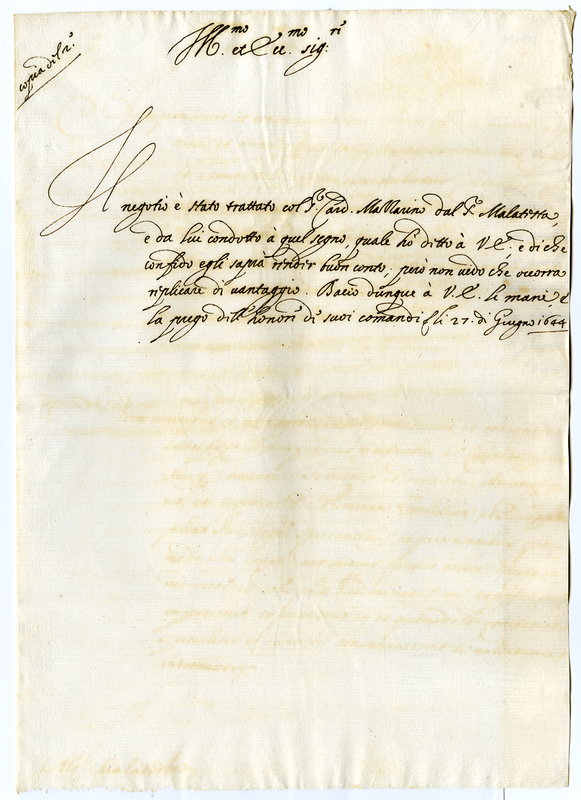 copia di l.ra
Ill.mo et Ecc.mo sig.r
Il negotio è stato trattato col S.r Card. Mazzarino dal S.r Malatesta,
e da lui condotto à quel segno, quale hò ditto à V.E., e di che
confido egli saprà render buon conto; però non vedo che occorra
replicare di vantaggio. Bacio dunque à V.E. le mani e
la prego dell' honor di suoi comandi li 27. di Giugno 1644